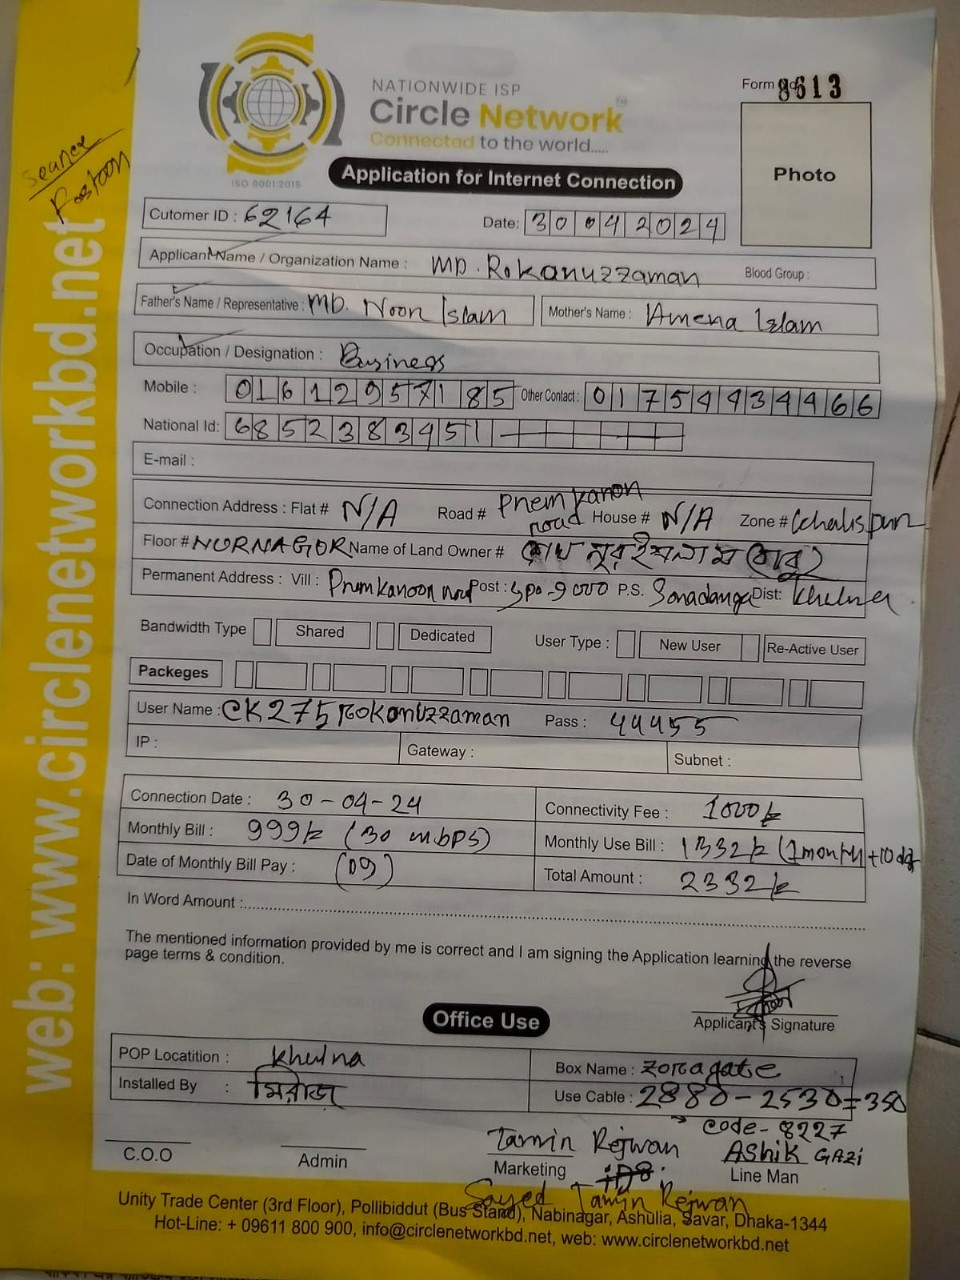 NATIONWIDE ISP
Circle Network™
Connected to the world.....
ISO 9001:2015
Form 8613
Application for Internet Connection
Photo
Cutomer ID : 62164
Date: 30 04 2024
Applicant Name / Organization Name : MD. Rokanuzzaman Blood Group :
Father's Name / Representative : MD. Noor Islam Mother's Name : Amena Islam
Occupation / Designation : Business
Mobile : 01612957185 Other Contact : 01754434466
National Id: 6852383451
E-mail :
Connection Address : Flat # N/A Road # Prem kanon road House # N/A Zone # Khalispur
Floor # NURNAGOR Name of Land Owner #
Permanent Address : Vill : Premkanoon road Post : GPO-9000 P.S. Sonadanga Dist: Khulna
Bandwidth Type Shared Dedicated User Type : New User Re-Active User
Packeges
User Name : CK275Rokanuzzaman Pass : 44455
IP : Gateway : Subnet :
Connection Date : 30-04-24 Connectivity Fee : 1000/=
Monthly Bill : 999/= (30 mbps) Monthly Use Bill : 1332/= (1month +10 day
Date of Monthly Bill Pay : (09) Total Amount : 2332/=
In Word Amount :
The mentioned information provided by me is correct and I am signing the Application learning the reverse
page terms & condition.
Applicant's Signature
Office Use
POP Locatition : Khulna Box Name : zoragate
Installed By : মিরাজ Use Cable : 2880-2530=350
Code-8227
Tamin Rejwan AShik GAZi
C.O.O Admin Marketing Line Man
Sayed Tamin Rejwan
Unity Trade Center (3rd Floor), Pollibiddut (Bus Stand), Nabinagar, Ashulia, Savar, Dhaka-1344
Hot-Line: + 09611 800 900, info@circlenetworkbd.net, web: www.circlenetworkbd.net
web: www.circlenetworkbd.net